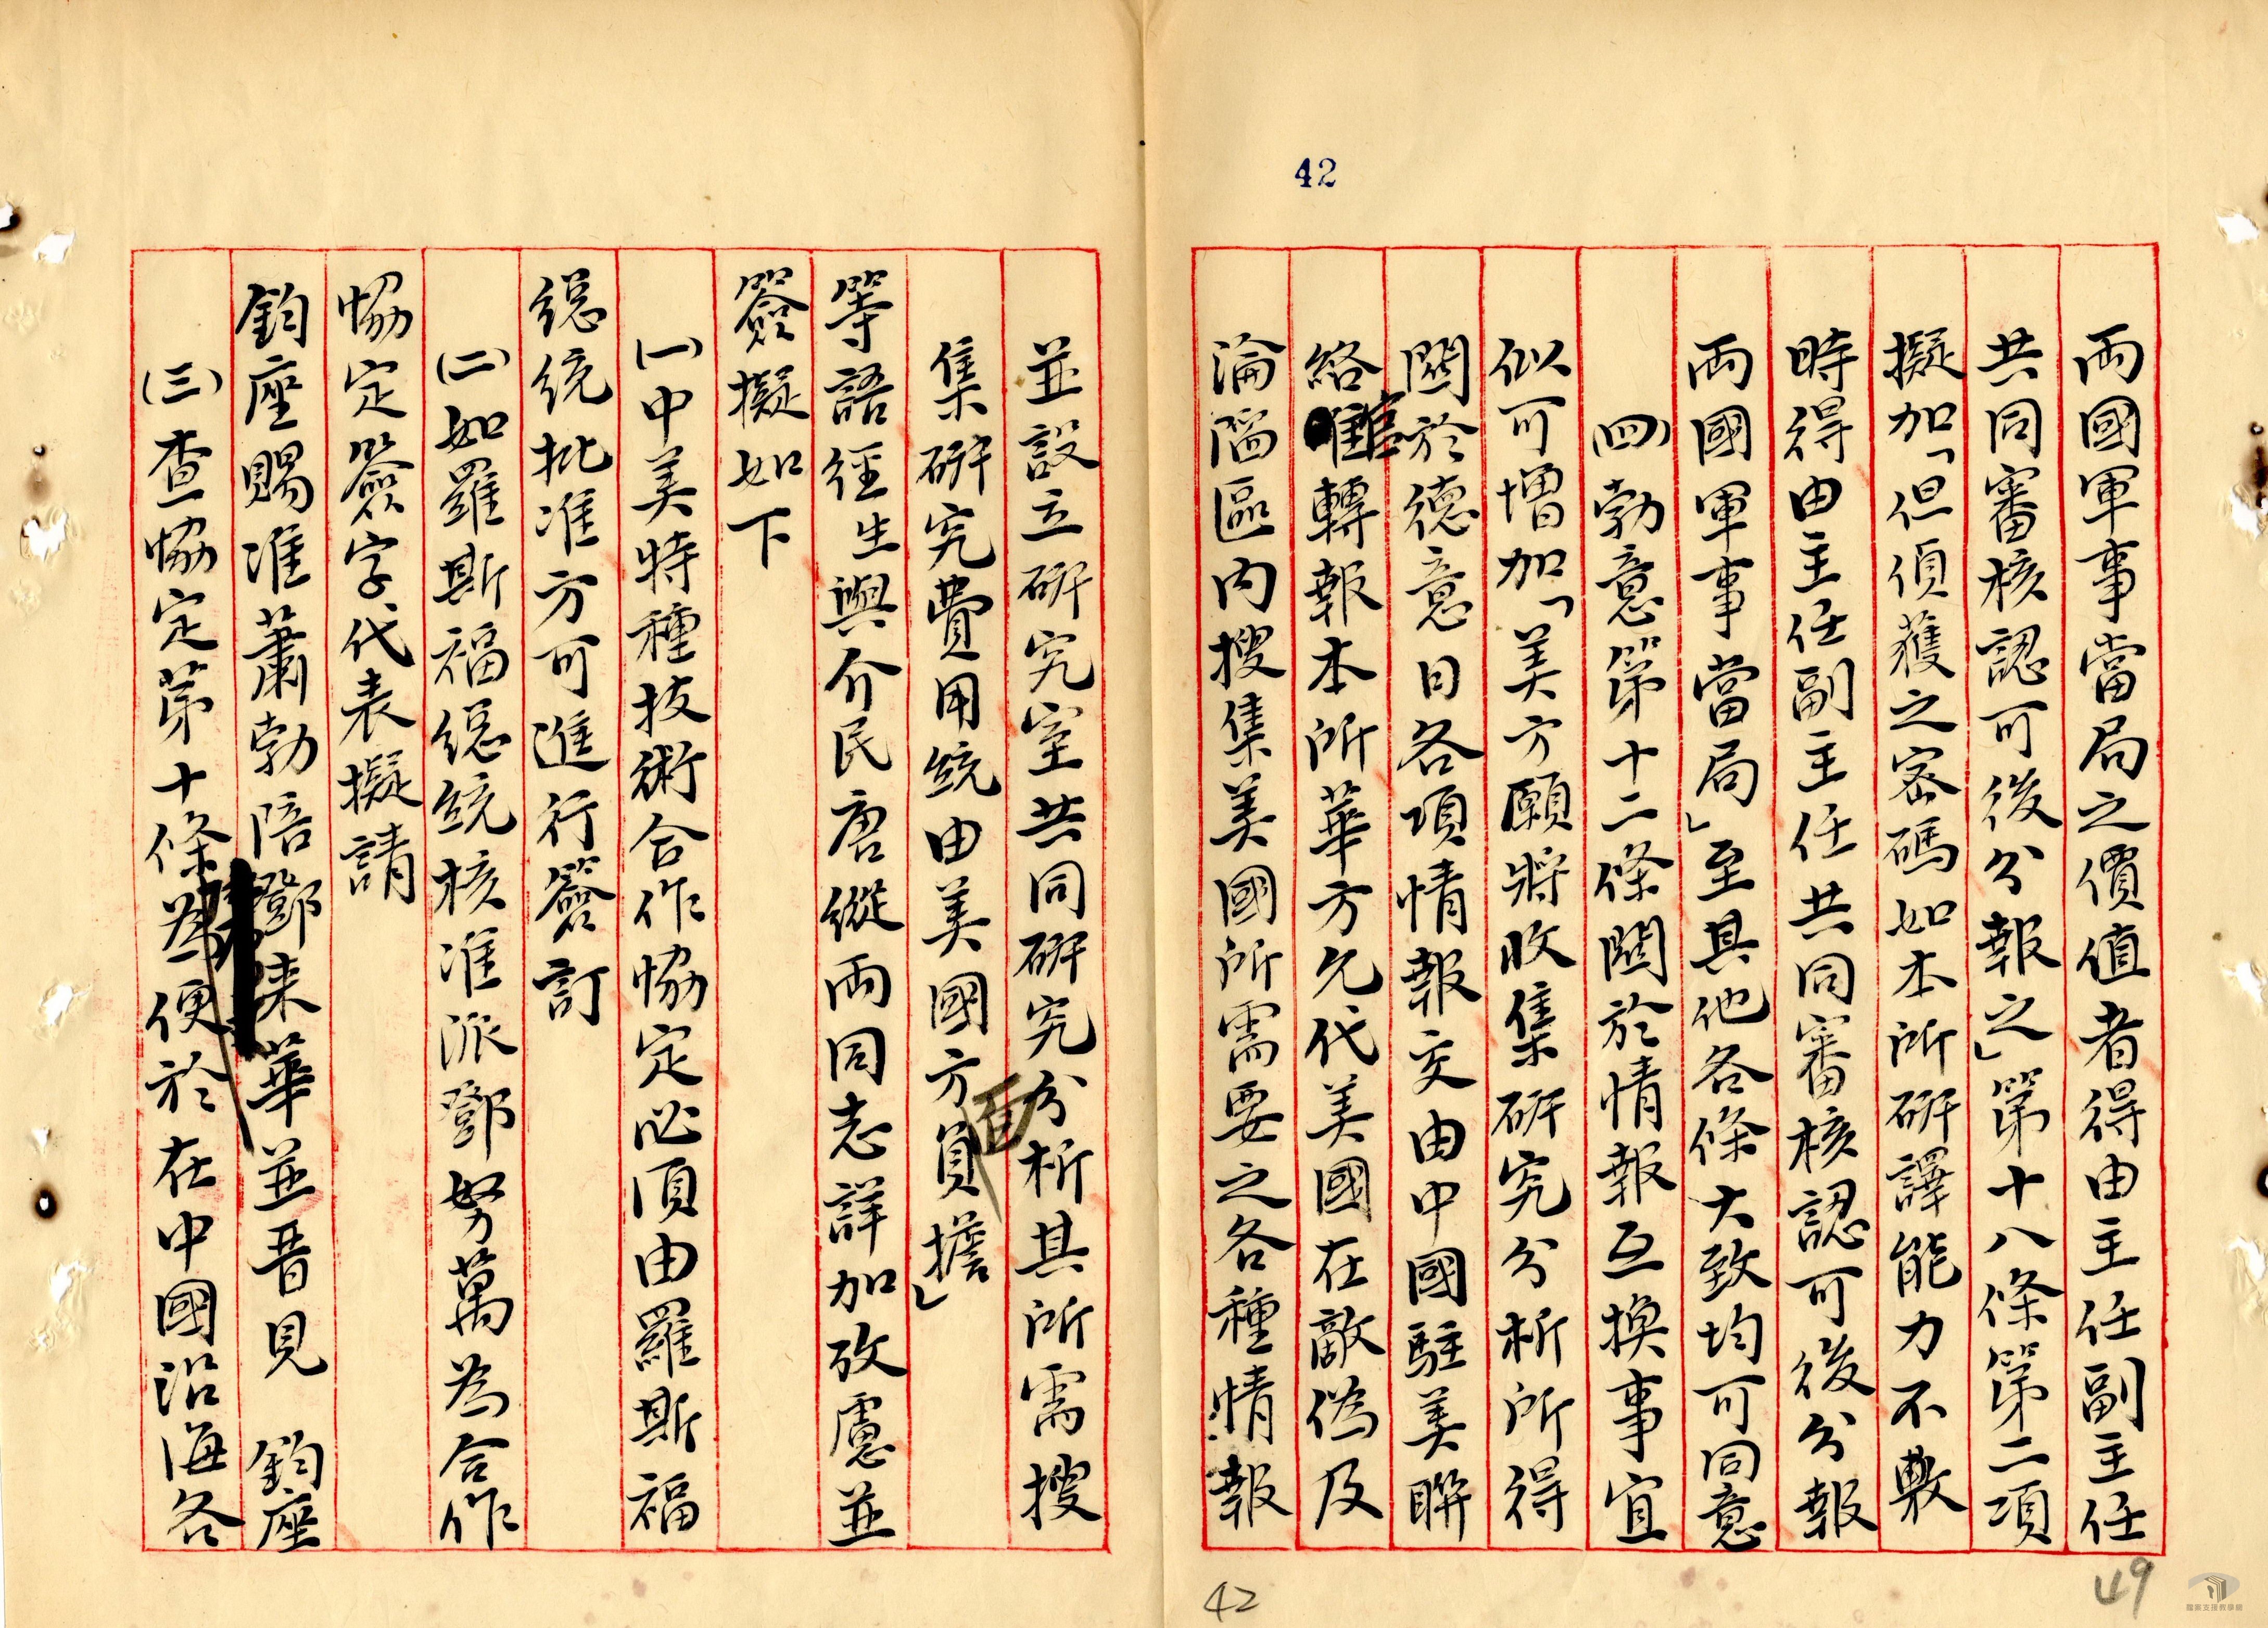 42
兩國軍事當局之價值者得由主任副主任
共同審核認可後分報之」第十八條第二項
擬加「但偵獲之密碼如本所研譯能力不敷
時得由主任副主任共同審核認可後分報
兩國軍事當局」至其他各條大致均可同意
(四)勃意第十二條關於情報互換事宜
似可增加「美方願將收集研究分析所得
關於德意日各項情報交由中國駐美聯
絡官轉報本所華方允代美國在敵偽及
淪陷區內搜集美國所需要之各種情報
並設立研究室共同研究分析其所需搜
集研究費用統由美國方面負擔」
等語經生與介民唐縱兩同志詳加攷慮並
簽擬如下
(一)中美特種技術合作協定必須由羅斯福
總統批准方可進行簽訂
(二)如羅斯福總統核准派鄧努萬為合作
協定簽字代表擬請
鈞座賜准蕭勃陪鄧來華並晋見 鈞座
(三)查協定第十條為便於在中國沿海各
42
49
檔案支援教學網